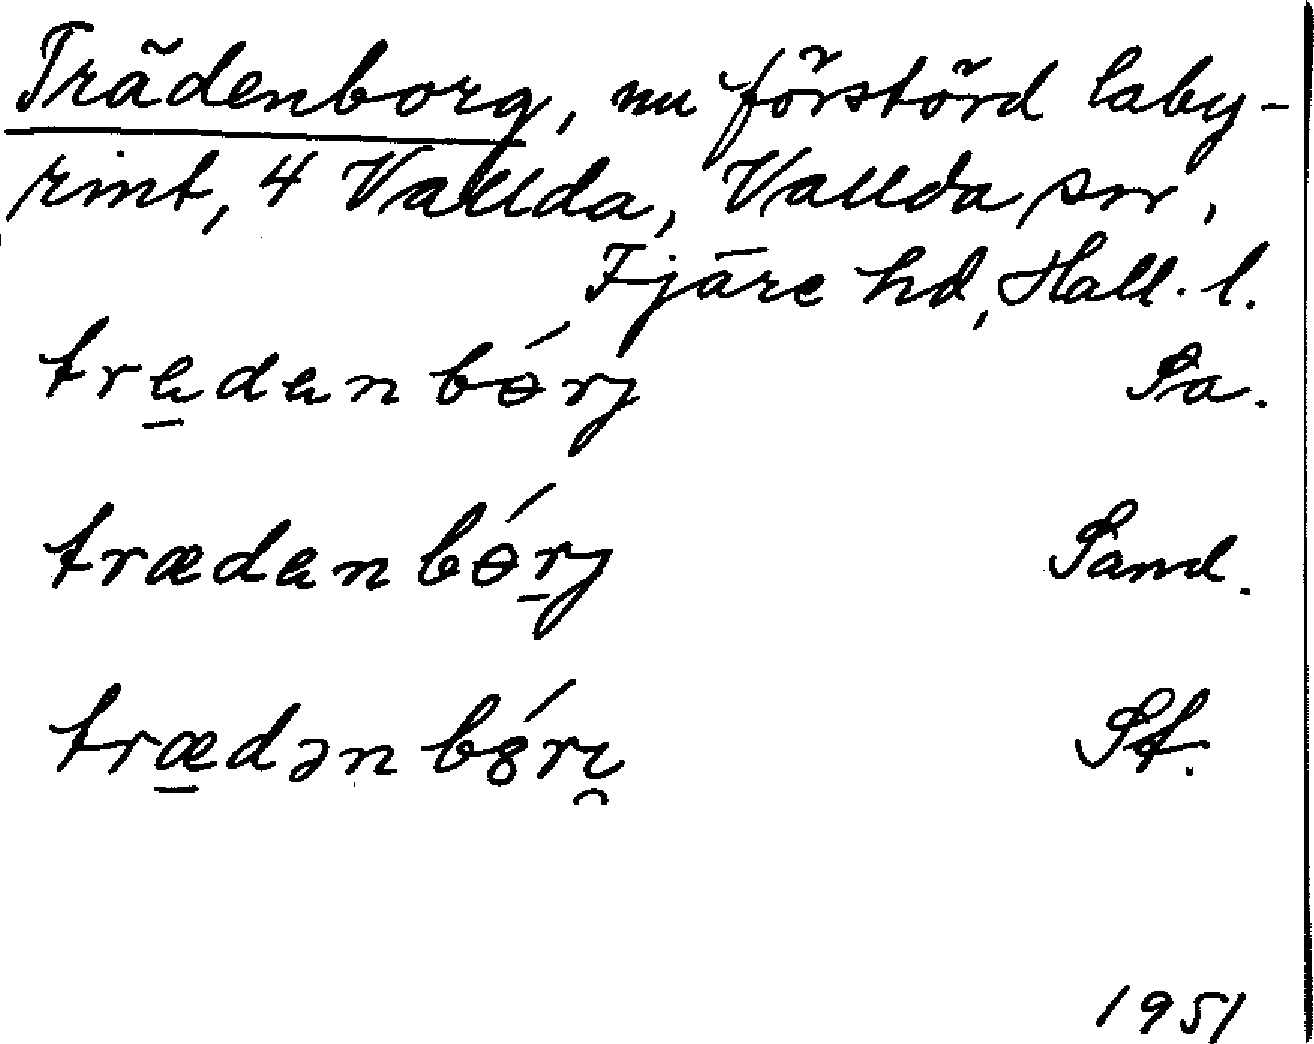 Trädenborg, nu förstörd laby-
rint, 4 Vallda, Vallda sn,
Fjäre hd, Hall. l.
trädänbɵ́rj Sa.
trædänbɵ́rj Sand.
trædənbɵ́ri̯ St.
1951